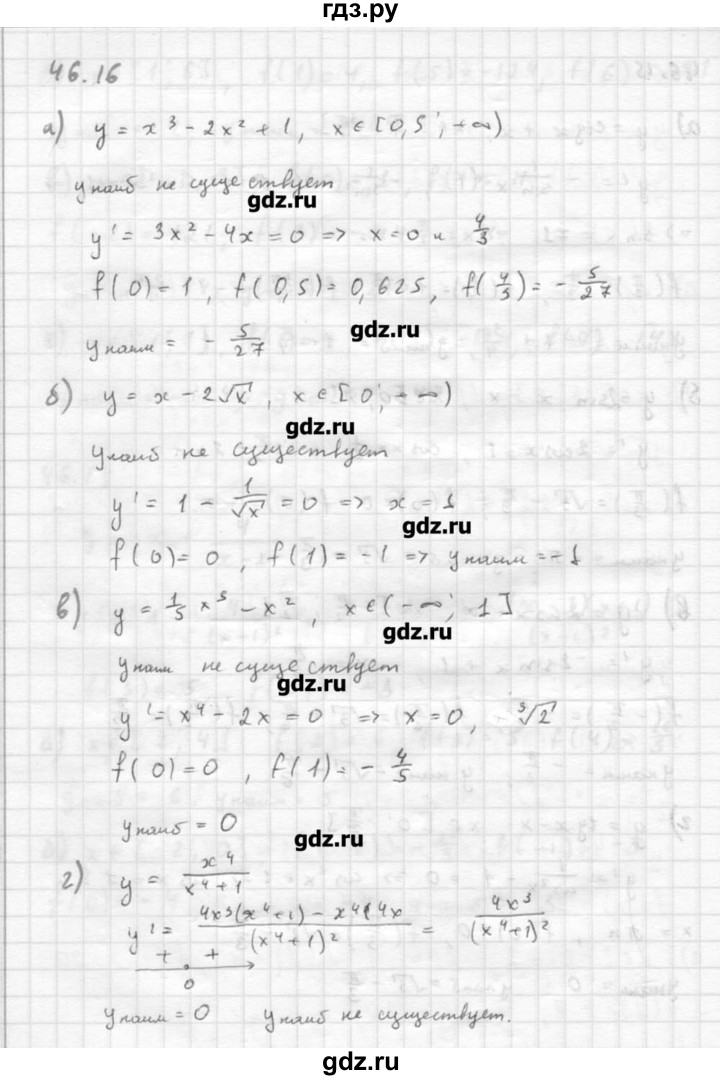 гдз.ру
46.16
а) y = x³ - 2x² + 1, x ∈ [0,5; +∞)
y наиб не существует
gdz.ru
y' = 3x² - 4x = 0 => x = 0 и 4/3
f(0) = 1, f(0,5) = 0,625, f(4/3) = -5/27
gdz.ru
y наим = -5/27
б) y = x - 2√x, x ∈ [0; +∞)
gdz.ru
y наиб не существует
y' = 1 - 1/√x = 0 => x = 1
gdz.ru
f(0) = 0, f(1) = -1 => y наим = -1
в) y = 1/5 x⁵ - x², x ∈ (-∞; 1]
gdz.ru
y наим не существует
gdz.ru
y' = x⁴ - 2x = 0 => x = 0, ³√2
f(0) = 0, f(1) = -4/5
y наиб = 0
gdz.ru
г) y = x⁴/(x⁴+1)
y' = (4x³(x⁴+1) - x⁴(4x)/(x⁴+1)² = 4x³/(x⁴+1)²
+ +
0
y наим = 0 y наиб не существует.
gdz.ru